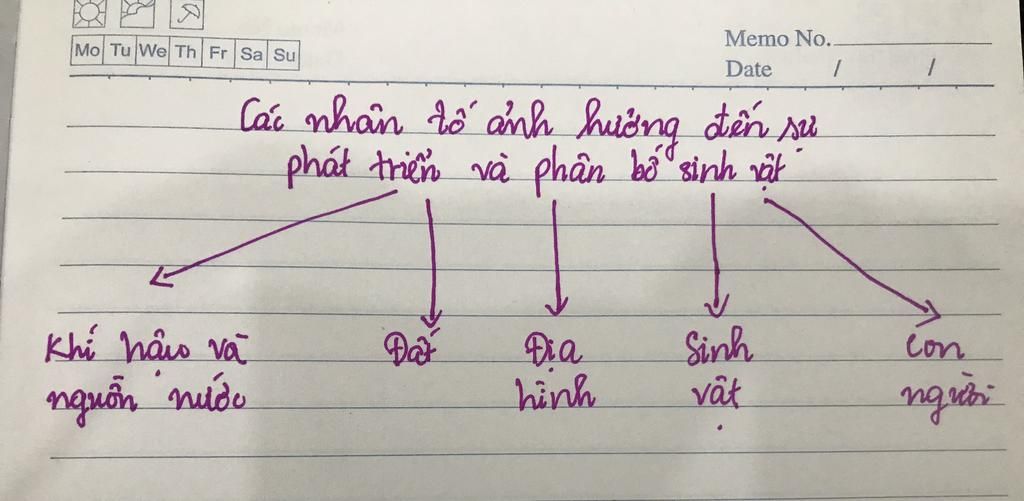 Mo Tu We Th Fr Sa Su
Memo No.
Date / /
Các nhân tố ảnh hưởng đến sự
phát triển và phân bố sinh vật
Khí hậu và
nguồn nước
Đất
Địa
hình
Sinh
vật
Con
người